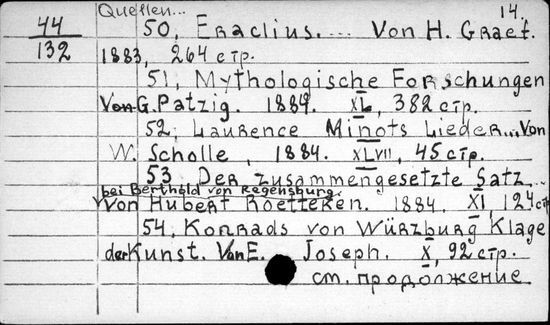 Quellen... 14.
44 50, Eraclius. ... Von H. Graef.
132 1883, 264 стр.
51, Mythologische Forschungen
Von G. Patzig. 1884. XL, 382 стр.
52, Laurence Minots Lieder... Von
W. Scholle, 1884. XLVII, 45 стр.
53 Der zusammengesetzte Satz
bei Berthold von Regensburg.
Von Hubert Roetteken. 1884. XI, 124 стр
54, Konrads von Würzburg Klage
der Kunst. Von E. Joseph. X, 92 стр.
см. продолжение